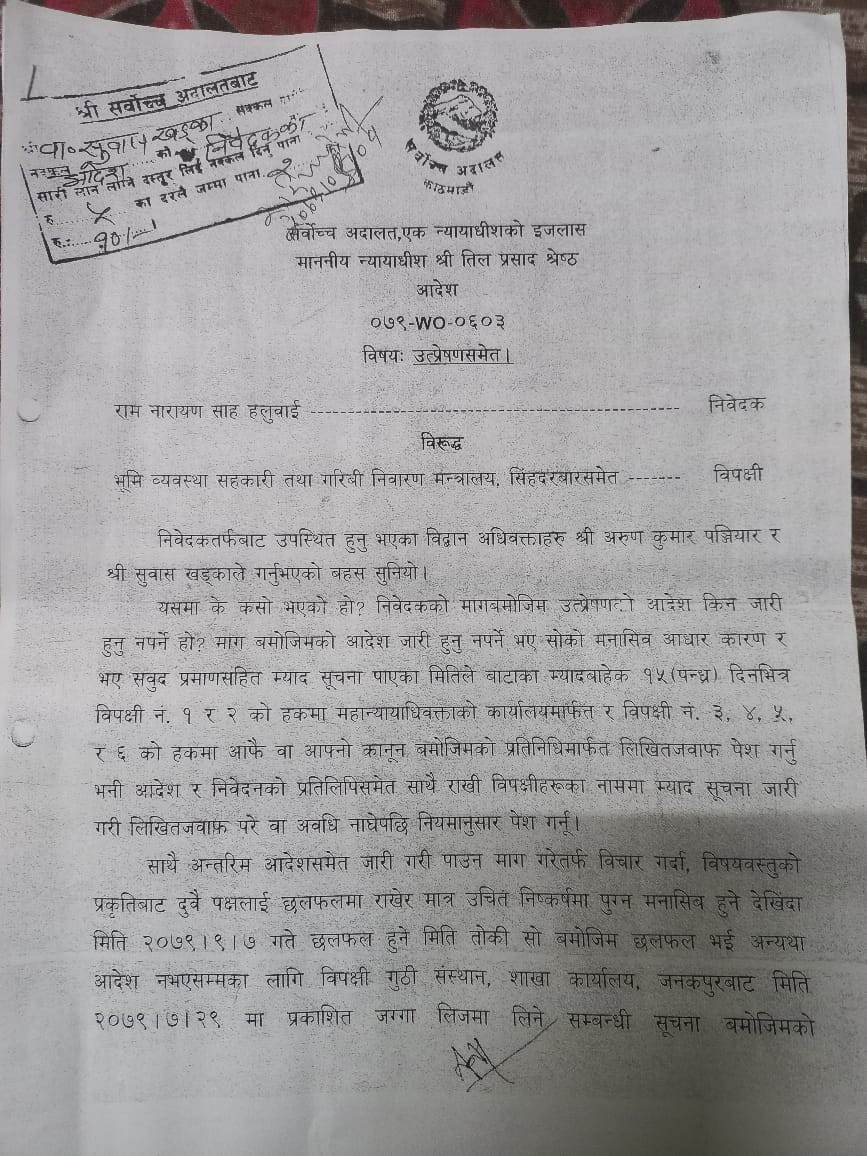 श्री सर्वोच्च अदालतबाट
वा. सुवास खड्का
को निवेदकको
आदेश
सारी लान लाग्ने दस्तूर लिई नक्कल दिनु पाना
रु. ५ का दरले जम्मा पाना २
रु.: १०/-
सर्वोच्च अदालत
काठमाडौं
सर्वोच्च अदालत,एक न्यायाधीशको इजलास
माननीय न्यायाधीश श्री तिल प्रसाद श्रेष्ठ
आदेश
०७९-WO-०६०३
विषयः उत्प्रेषणसमेत।
राम नारायण साह हलुवाई ---------------------------------------------- निवेदक
विरूद्ध
भूमि व्यवस्था सहकारी तथा गरिबी निवारण मन्त्रालय, सिंहदरबारसमेत ------- विपक्षी
निवेदकतर्फबाट उपस्थित हुनु भएका विद्वान अधिवक्ताहरु श्री अरुण कुमार पञ्जियार र
श्री सुवास खड्काले गर्नुभएको बहस सुनियो।
यसमा के कसो भएको हो? निवेदकको मागबमोजिम उत्प्रेषणको आदेश किन जारी
हुनु नपर्ने हो? माग बमोजिमको आदेश जारी हुनु नपर्ने भए सोको मनासिव आधार कारण र
भए सवुद प्रमाणसहित म्याद सूचना पाएका मितिले बाटाका म्यादबाहेक १५(पन्ध्र) दिनभित्र
विपक्षी नं. १ र २ को हकमा महान्यायाधिवक्ताको कार्यालयमार्फत र विपक्षी नं. ३, ४, ५,
र ६ को हकमा आफै वा आफ्नो कानून बमोजिमको प्रतिनिधिमार्फत लिखितजवाफ पेश गर्नु
भनी आदेश र निवेदनको प्रतिलिपिसमेत साथै राखी विपक्षीहरूका नाममा म्याद सूचना जारी
गरी लिखितजवाफ परे वा अवधि नाघेपछि नियमानुसार पेश गर्नू।
साथै अन्तरिम आदेशसमेत जारी गरी पाउन माग गरेतर्फ विचार गर्दा, विषयवस्तुको
प्रकृतिबाट दुवै पक्षलाई छलफलमा राखेर मात्र उचित निष्कर्षमा पुग्न मनासिब हुने देखिंदा
मिति २०७९।९।७ गते छलफल हुने मिति तोकी सो बमोजिम छलफल भई अन्यथा
आदेश नभएसम्मका लागि विपक्षी गुठी संस्थान, शाखा कार्यालय, जनकपुरबाट मिति
२०७९।७।२९ मा प्रकाशित जग्गा लिजमा लिने सम्बन्धी सूचना बमोजिमको